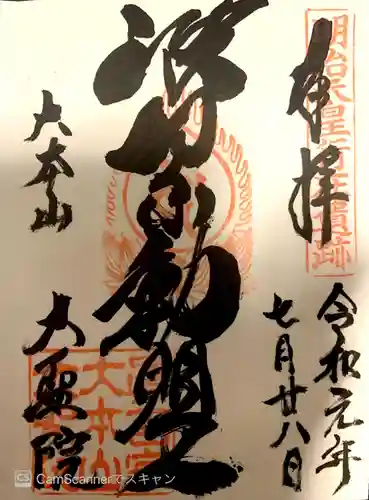 明治天皇行在遺跡
奉拝
令和元年
七月廿八日
波切不動明王
大本山
大聖院
CS CamScannerでスキャン